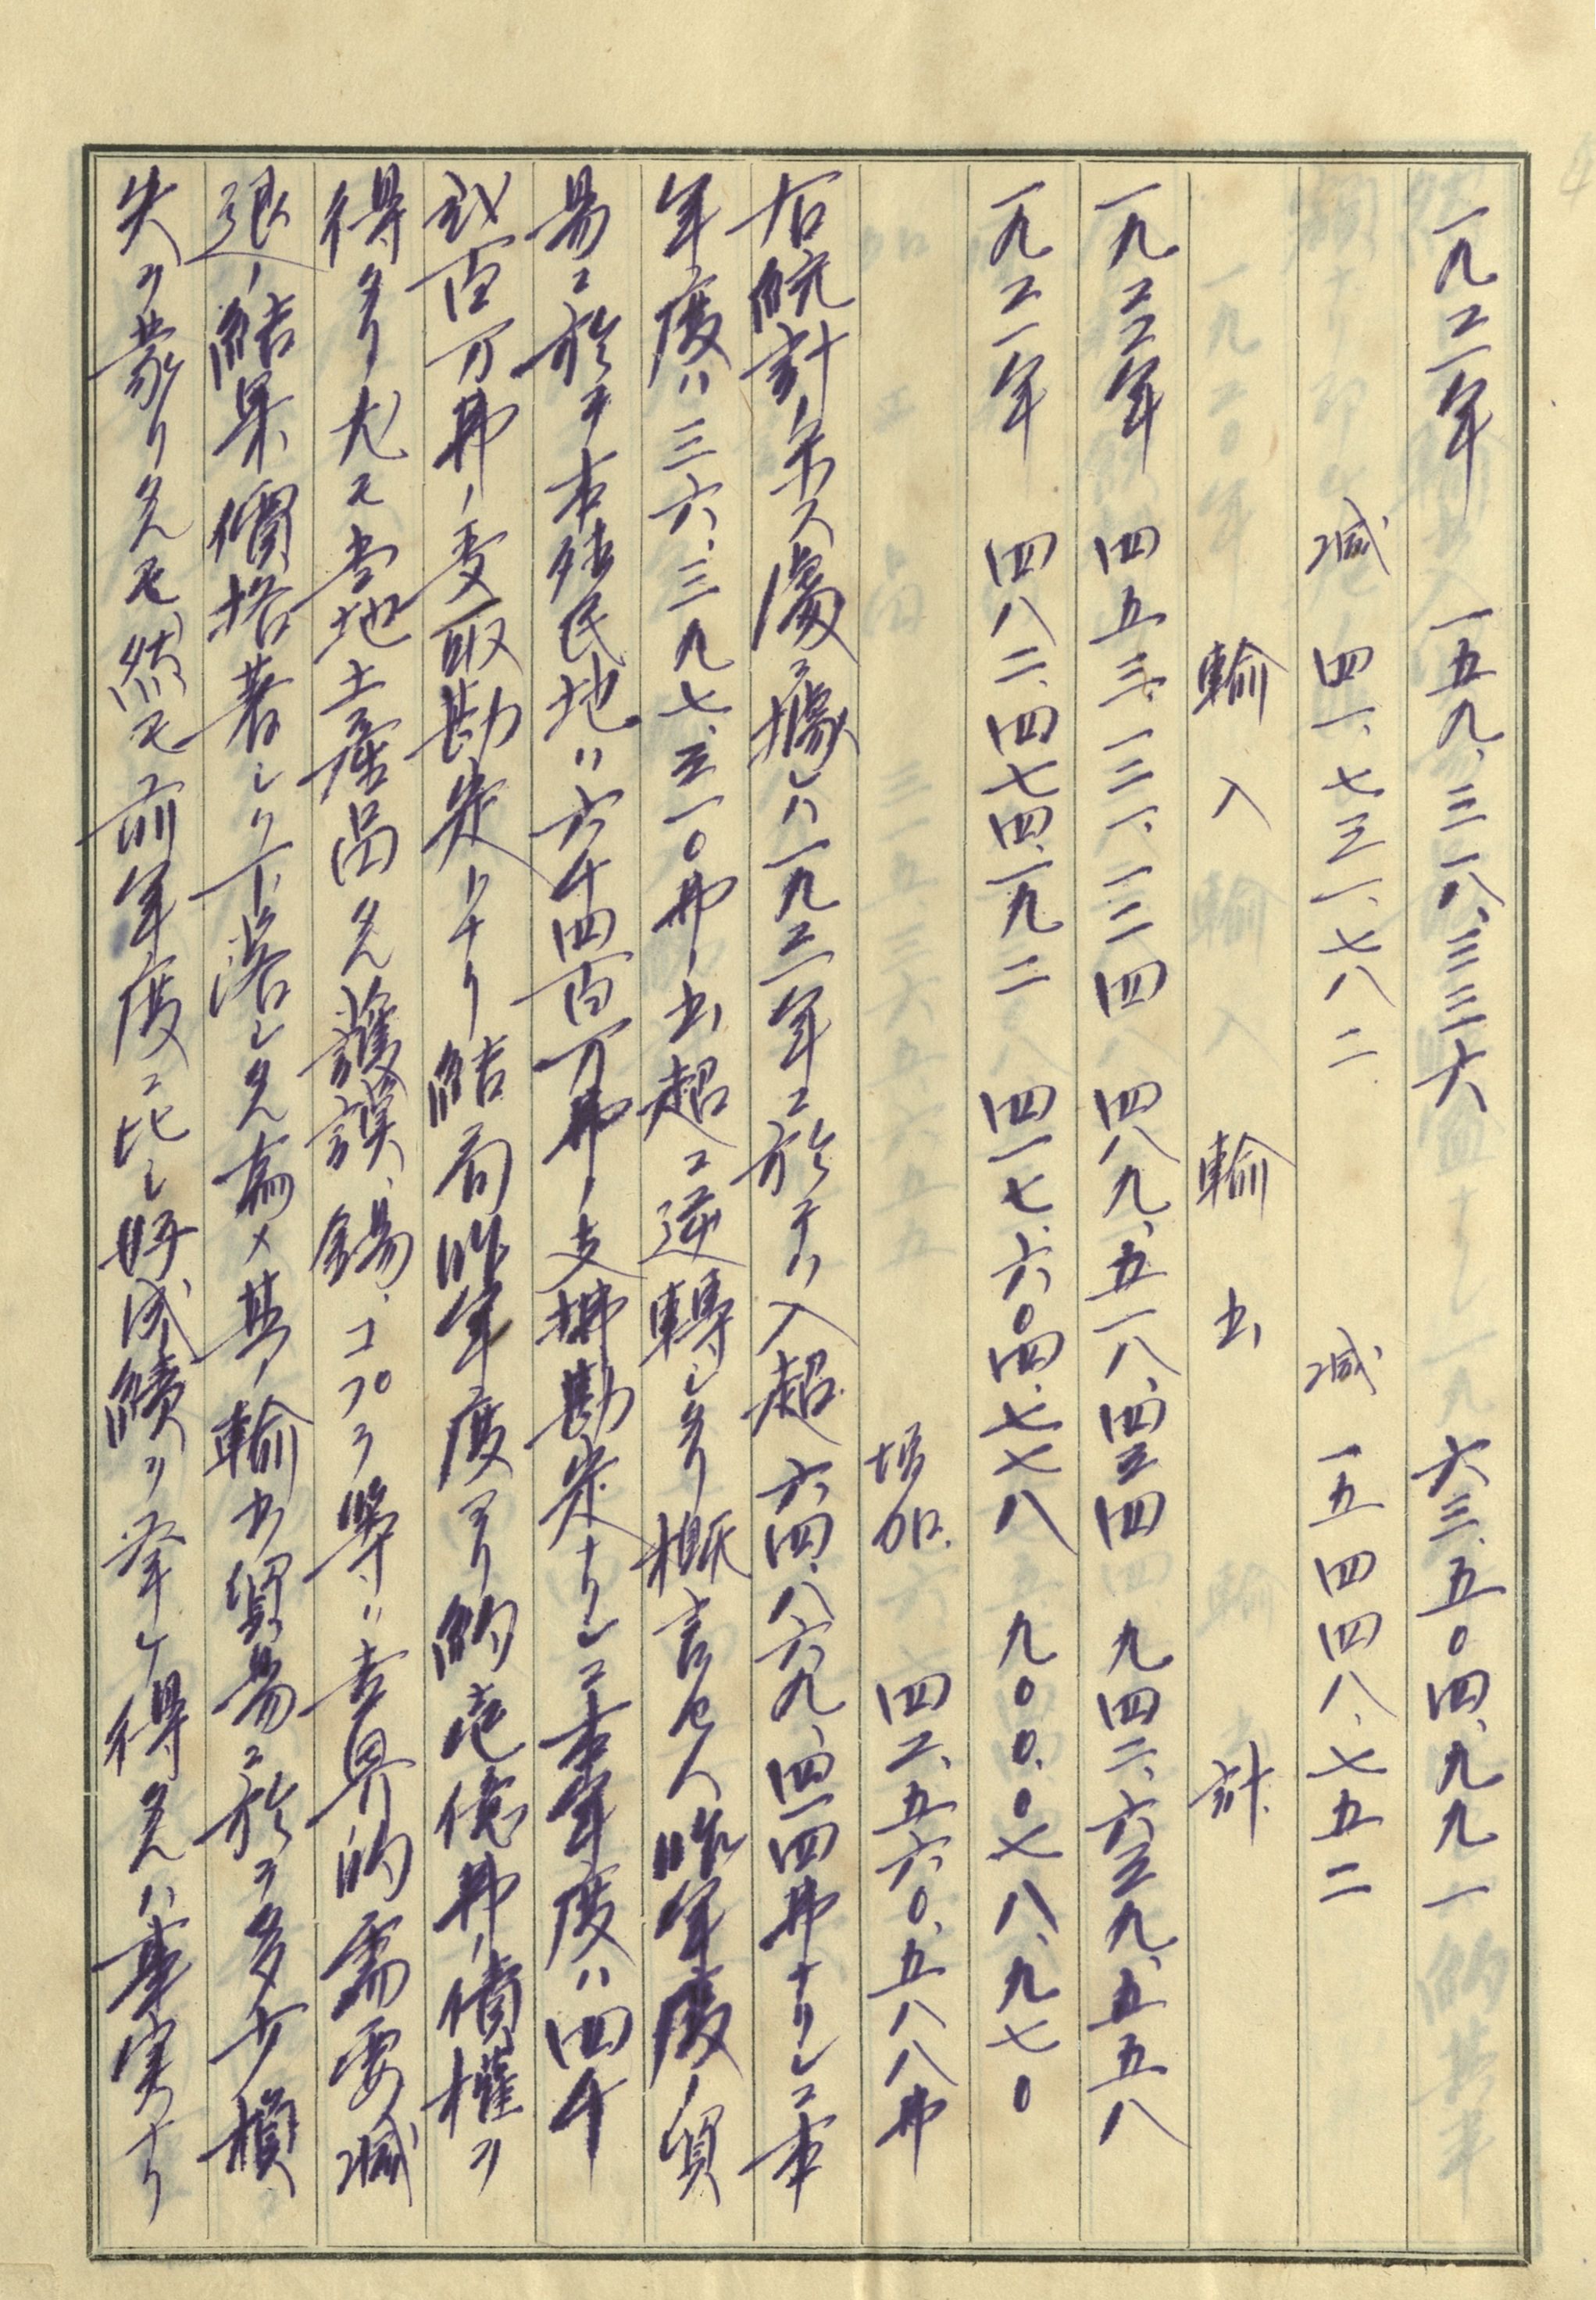 一九二一年　一五九、三一八、三三六　六三、五〇四、九九一
減　四一、七三一、七八二　減　一五四四八、七五二
輸入　輸出　計
一九二二年　四五三、一二一、一二四　四八九、五一八、四三四　九四二、六三九、五五八
一九二一年　四八二、四七四、一九二　四一七、六〇四、七七八　九〇〇、〇七八、九七〇
増加　四二、五六〇、五八八弗
右統計ノ示ス處ニ據レハ一九二一年ニ於テハ入超六四、八六九、四一四弗ナリシニ本
年度ハ三六、三九七、三一〇弗ノ出超ニ逆轉シタリ概言セハ昨年度ノ貿
易ニ於テ本殖民地ハ六千四百万弗ノ支拂勘定ナリシニ本年度ハ四千
弐百万弗ノ受取勘定トナリ結局昨年度ヨリ約壱億弗ノ債権ヲ
得タリ尤モ当地土産品タル護謨、錫、コプラ等ハ世界的需要減
退ノ結果價格著シク下落シタル為メ其ノ輸出貿易ニ於テ多少損
失ヲ蒙リタルモ然モ前年度ニ比シ好成績ヲ挙ケ得タルハ事実ナリ